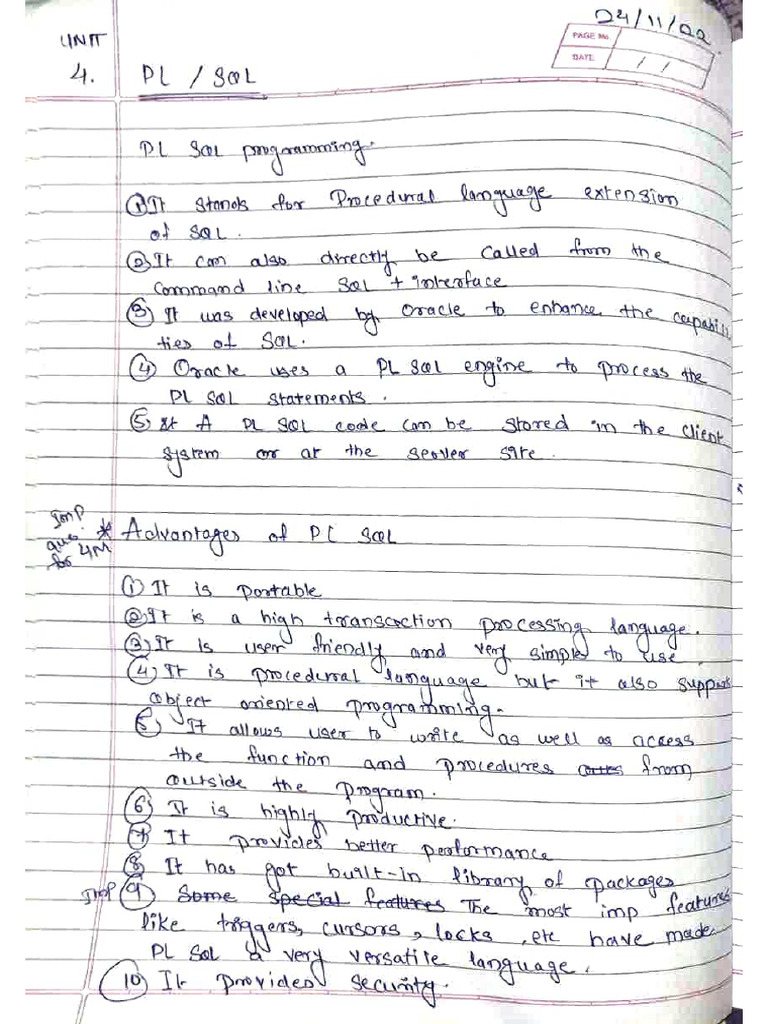 24/11/22
PAGE No.
DATE / /
UNIT
4. PL / SQL
PL SQL programming.
① It stands for Procedural language extension
of SQL.
② It can also directly be called from the
command line SQL + interface
③ It was developed by oracle to enhance the capabili
ties of SQL.
④ Oracle uses a PL SQL engine to process the
PL SQL statements.
⑤ A PL SQL code can be stored in the client
system or at the server site.
Imp
ques
for 4M
* Advantages of PL SQL
① It is portable
② It is a high transaction processing language.
③ It is user friendly and very simple to use.
④ It is procedural language but it also supports
object oriented programming.
⑤ It allows user to write as well as access
the function and procedures from
outside the program.
⑥ It is highly productive.
⑦ It provides better performance
⑧ It has got built-in library of packages
Imp ⑨ Some special features The most imp features
like triggers, cursors, locks, etc have made
PL SQL a very versatile language.
⑩ It provides security.